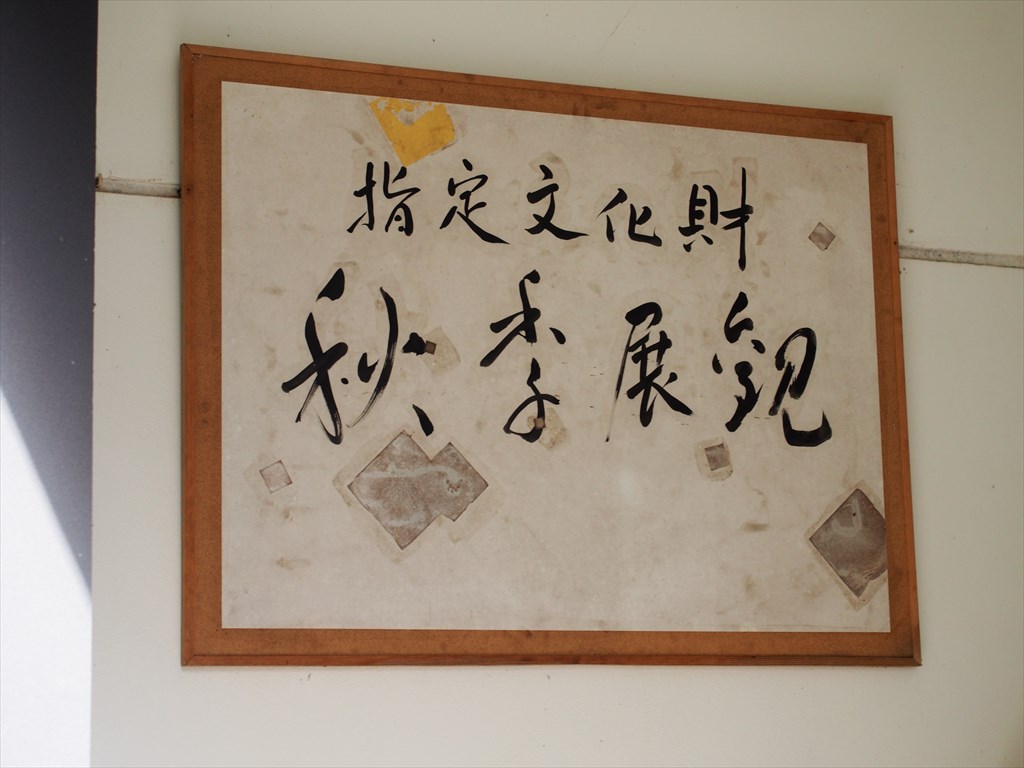 指定文化財
秋季展観